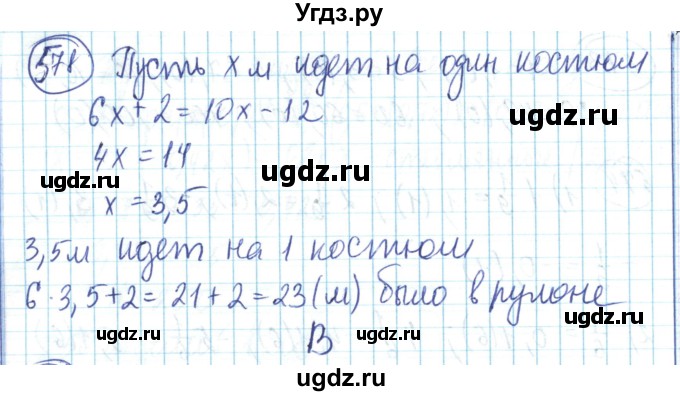 Угдз.ру
578 Пусть х м идет на один костюм
6x + 2 = 10x - 12
4x = 14
x = 3,5
3,5м идет на 1 костюм
6 · 3,5 + 2 = 21 + 2 = 23 (м) было в рулоне
В
ugdz.ru
ugdz.ru
ugdz.ru
ugdz.ru
ugdz.ru
ugdz.ru
ugdz.ru
ugdz.ru